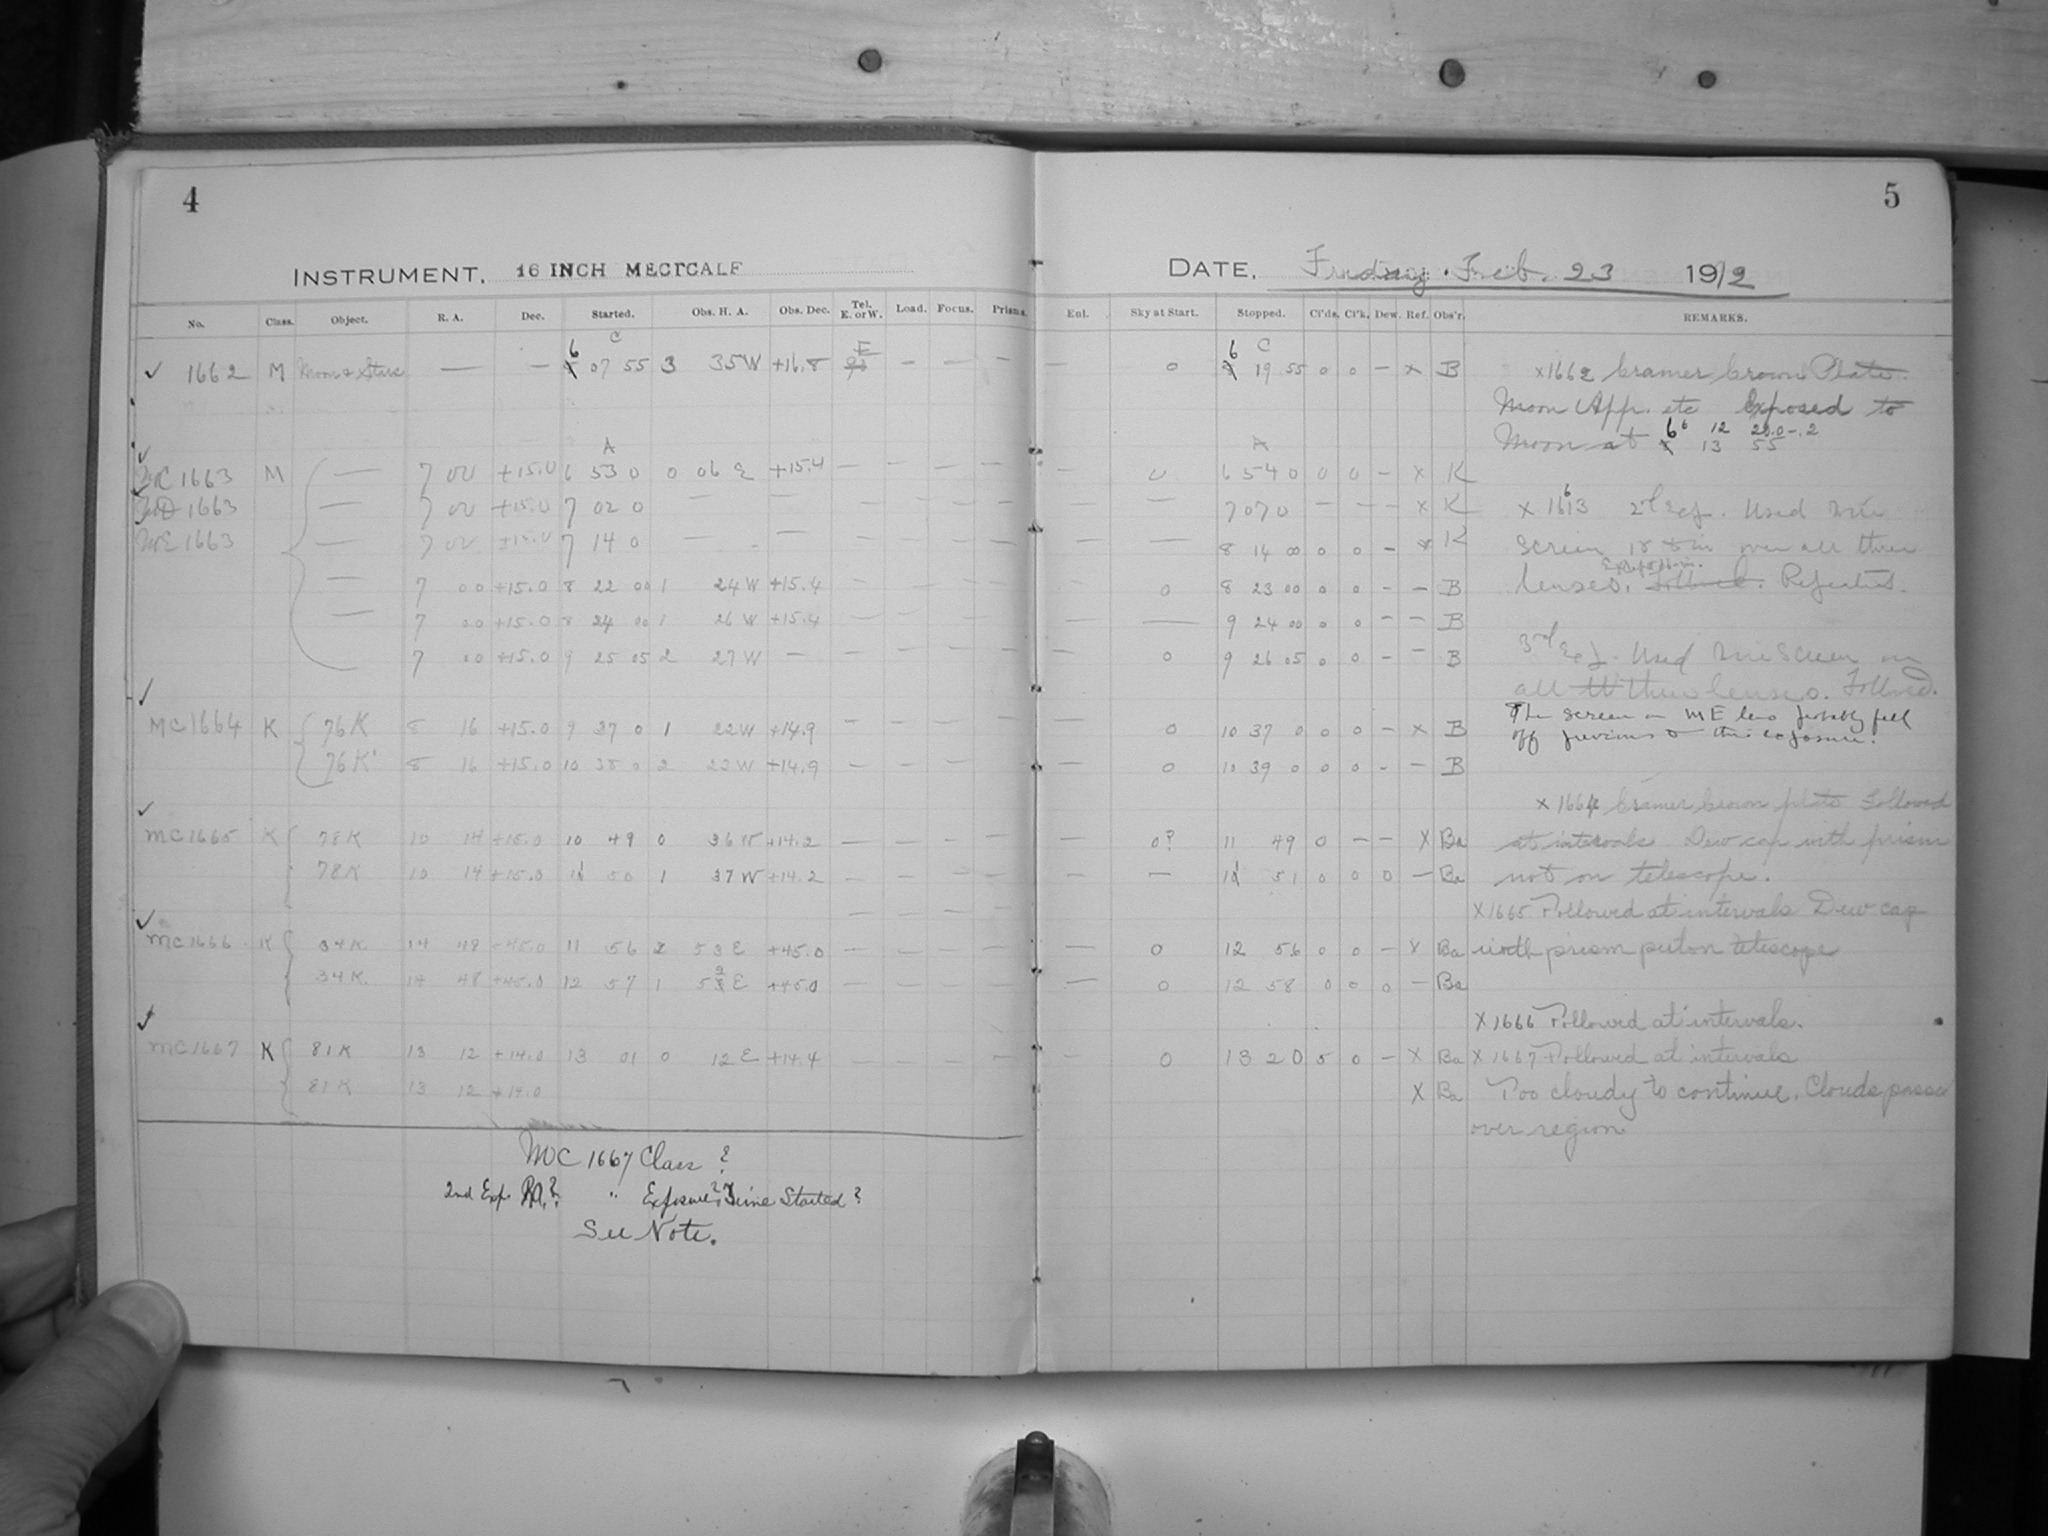 4
INSTRUMENT, 16 INCH METCALF
No. Class. Object. R. A. Dec. Started. Obs. H. A. Obs. Dec. Tel. E. or W. Load. Focus. Prisms.
1662 M Moon & Stars — — 6 07 55 3 35 W +16.8 E — — —
C
A
MC 1663 M — 7 00 +15.0 6 53 0 0 06 E +15.4 — — — —
MD 1663 — 7 00 +15.0 7 02 0 — —
ME 1663 — 7 00 +15.0 7 14 0 — —
— 7 00 +15.0 8 22 00 1 24 W +15.4 — — — —
— 7 00 +15.0 8 24 00 1 26 W +15.4 — — — —
— 7 00 +15.0 9 25 05 2 27 W — — — — —
MC 1664 K 76 K 8 16 +15.0 9 37 0 1 22 W +14.9 — — — —
76 K' 8 16 +15.0 10 38 0 2 22 W +14.9 — — — —
MC 1665 K 78 K 10 14 +15.0 10 49 0 36 W +14.2 — — — —
78 K 10 14 +15.0 11 50 1 37 W +14.2 — — — —
MC 1666 K 34 K 14 48 +45.0 11 56 2 53 E +45.0 — —
34 K. 14 48 +45.0 12 57 1 52 E +45.0 — — — —
MC 1667 K 81 K 13 12 +14.0 13 01 0 12 E +14.4 — — — —
81 K 13 12 +14.0
MC 1667 Class ?
2nd Exp. R.A.? " Exposure? Time Started?
See Note.
5
DATE, Friday. Feb. 23 1912
Enl. Sky at Start. Stopped. Cl'ds. Cl'k. Dew. Ref. Obs'r. REMARKS.
C
0 6 19 55 0 0 — x B
A
— 0 6 54 0 0 0 — x K
— — 7 07 0 — — — x K
— — 8 14 00 0 0 — x K
— 0 8 23 00 0 0 — — B
— — 9 24 00 0 0 — — B
— 0 9 26 05 0 0 — — B
— 0 10 37 0 0 0 — x B
0 10 39 0 0 0 - — B
— 0? 11 49 0 — — X Ba
— — 11 51 0 0 0 — Ba
— 0 12 56 0 0 — x Ba
— 0 12 58 0 0 0 — Ba
— 0 13 20 5 0 — X Ba
X Ba
x1662 Cramer Crown Plate.
Moon App. etc Exposed to
Moon at 6 12 13 55
x 1663 2d Exp. Used
Screen in over all three
lenses. Followed. Rejected.
3rd Exp. Used Screen on
all three lenses. Followed.
The screen on ME lens probably fell
off previous to this exposure.
x 1664 Cramer Crown plate Followed
at intervals Dew cap with prism
not on telescope.
X1665 Followed at intervals Dew cap
with prism put on telescope
X1666 Followed at intervals.
X 1667 Followed at intervals
Too cloudy to continue. Clouds passed
over region